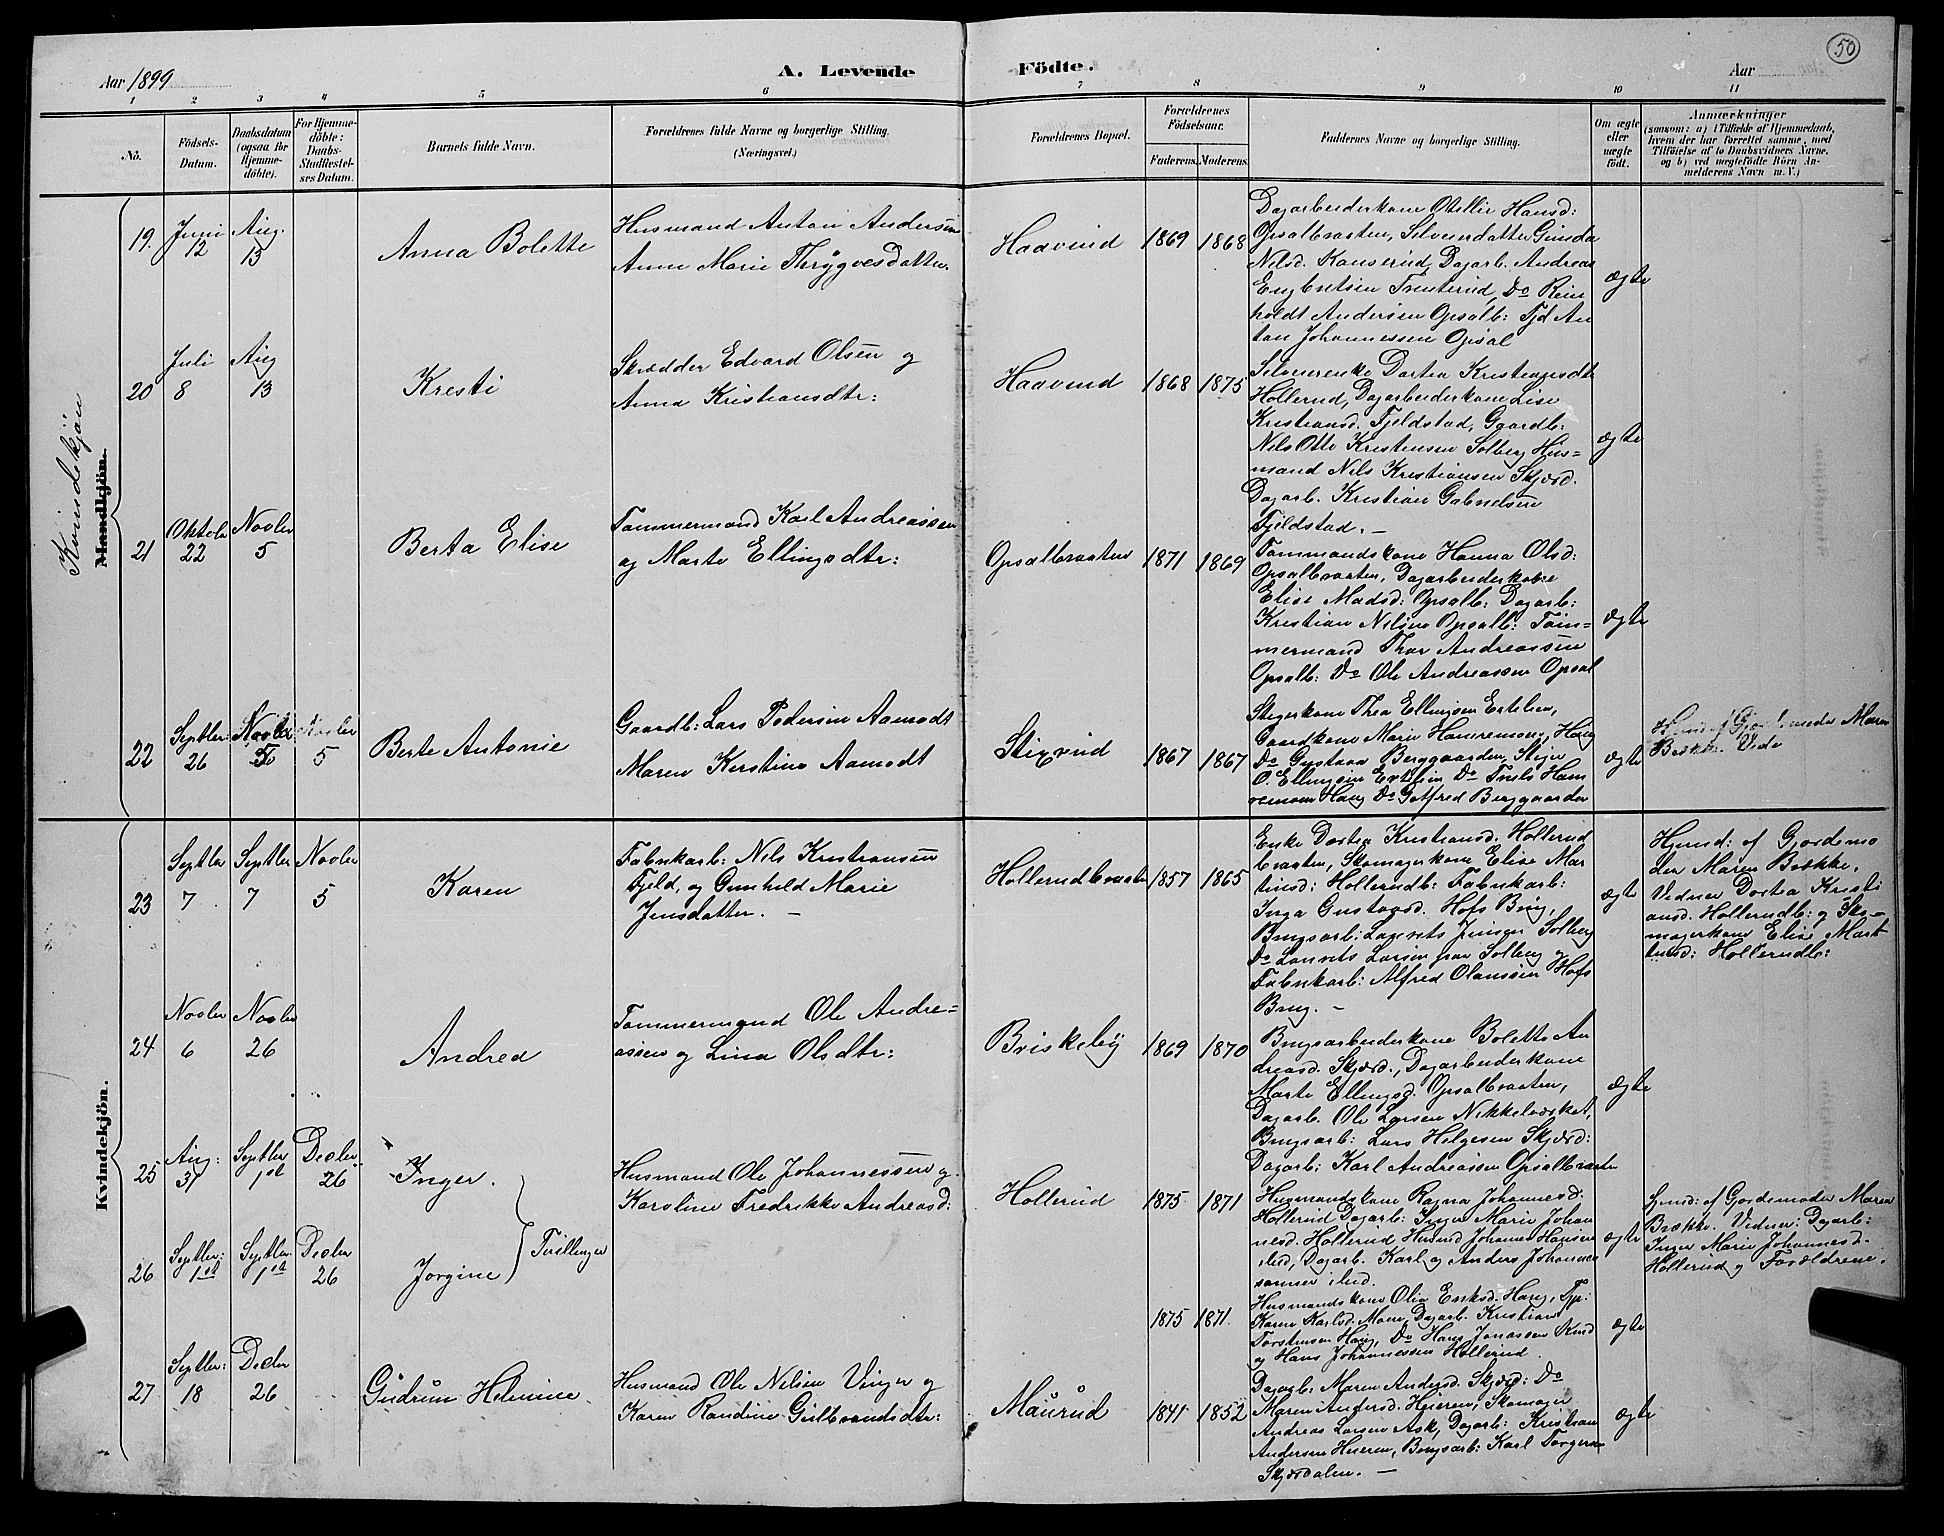 50
Aar 1899
A. Levende Födte.
Aar
1 2 3 4 5 6 7 8 9 10 11
No.
Födsels-Datum.
Daabsdatum (ogsaa for Hjemme-döbte).
For Hjemme-döbte: Daabs-Stadfæstel-ses Datum.
Barnets fulde Navn.
Forældrenes fulde Navne og borgerlige Stilling. (Næringsvei.)
Forældrenes Bopæl.
Forældrenes Födselsaar.
Faderens. Moderens.
Faddernes Navne og borgerlige Stilling.
Om ægte eller uægte födt.
Anmærkninger
(saasom: a) i Tilfælde af Hjemmedaab,
hvem der har forrettet samme, med
Tilföielse af to Daabsvidners Navne,
og b) ved uægtefödte Börn An-
melderens Navn m. V.)
Kvindekjön
Mandkjön.
19. Juni 12 Aug. 13
Anna Bolette
Husmand Anton Andersen
Anne Marie Thrygvesdatter.
Haavind
1869 1868
Dagarbeiderkone Otellie Hansd:
Opsalbraaten, Selveierdatter Gunda
Nilsd. Konserud, Dagarb. Andreas
Engbretsen Do Rein
holdt Andersen Opsalb: Tjd An
ton Johannessen Opsal
ægte
20 Juli 8 Aug 13
Kresti
Skrædder Edvard Olsen og
Anna Kristiansdtr:
Haavind
1868 1875
Selveierenke Dortea Kristiansdtr
Hollerud, Dagarbeiderkone Lise
Kristiansd. Fjeldstad, Gaardb:
Nils Otto Kristensen Solberg Hus=
mand Nils Kristiansen Skjærd.
Dagarb. Kristian Gabrielsen
Fjeldstad. —
ægte
21 Oktobr 22 Novbr 5
Berta Elise
Tømmermand Karl Andreassen
og Marte Ellingsdtr:
Opsalbraaten
1871 1869
Tømmandskone Hanna Olsd:
Opsalbraaten, Dagarbeiderkone
Elise Madsd: Opsalb: Dagarb:
Kristian Nilsen Opsalb: Tøm=
mermand Thor Andreassen
Opsalb: Do Ole Andreassen Opsal
ægte
22 Septbr: 26 Novbr 5 5
Berte Antonie
Gaardb: Lars Pedersen Aamodt
Maren Kerstine Aamodt
1867 1867
Stigerkone Thea Ellingsen
Gaardkone Marie Haug
Do Gustava Berggaarden, Stiger
O. Ellingsen Do
Haug Do Gotfred Berggaarden
ægte
Maren
Kvindekjön.
23 Septbr 7 Septbr 7 Novbr 5
Karen
Fabrikarb: Nils Kristiansen
Fjeld, og Gunhild Marie
Jensdatter. —
Hollerudbraaten
1857 1865
Enke Dortea Kristiansd. Hollerud
braaten, Skomagerkone Elise Mar
tinsd: Hollerudb: Fabrikarb:
Inga Gustavsd. Hofs Brug,
Brugsarb: Lauvits Jensen Solberg
Do Lauvits Larsen paa Solberg og
Fabrikarb: Alfred Olaussen Hofs
Brug. —
ægte
Hjemd: af Gjordemo
der Maren Bække.
Vidner Dortea Kristi
ansd. Hollerudb: og Sko=
magerkone Elise Mart
insd: Hollerudb:
24 Novbr 6 Novbr 26
Andrea
Tømmermand Ole Andre=
assen og Lina Olsdtr:
Briskeby
1869 1870
Brugsarbeiderkone Bolette An
dreasd. Skjærd., Dagarbeiderkone
Marte Ellingsd. Opsalbraaten,
Dagarb. Ole Larsen Nikkelværket,
Brugsarb: Lars Helgesen Skjærd:
Dagarb: Karl Andreassen Opsalbraaten
ægte
25 Aug: 31 Septbr 1st Decbr 26
Inger.
26 Septbr: 1st Septbr 1st Decbr 26
Jorgine
Tvillinger
Husmand Ole Johannessen og
Karoline Fredrikke Andreasd:
Hollerud
1875 1871
Husmandskone Ragna Johannesd:
Hollerud Dagarb: Inger Marie Johan
nesd. Hollerud Husmd Johannes Hansen
ibid, Dagarb. Karl og Anders Johannes
sønner ibid.
ægte
Hjemd: af Gjordemoder Maren
Bække. Vidner: Dagarb:
Inger Marie Johannesd.
Hollerud og Forældrene.
1875 1871.
Husmandskone Olia Eriksd. Haug, Tjp:
Karen Karlsd. Moen, Dagarb. Kristian
Torstensen Haug, Do Hans Jonassen Rud
og Hans Johannessen Hollerud.
ægte
27 Septbr: 18 Decbr 26
Gudrun Helmine
Husmand Ole Nilsen Vinger og
Karen Randine Gulbrandsdtr:
Maurud
1841 1852
Dagarb: Maren Andersd. Skjærd: Do
Maren Andersd. Heieren, Skomager
Andreas Larsen Ask, Dagarb: Kristian
Andersen Heieren, Brugsarb: Karl Torgersen
Skjærdalen. —
ægte